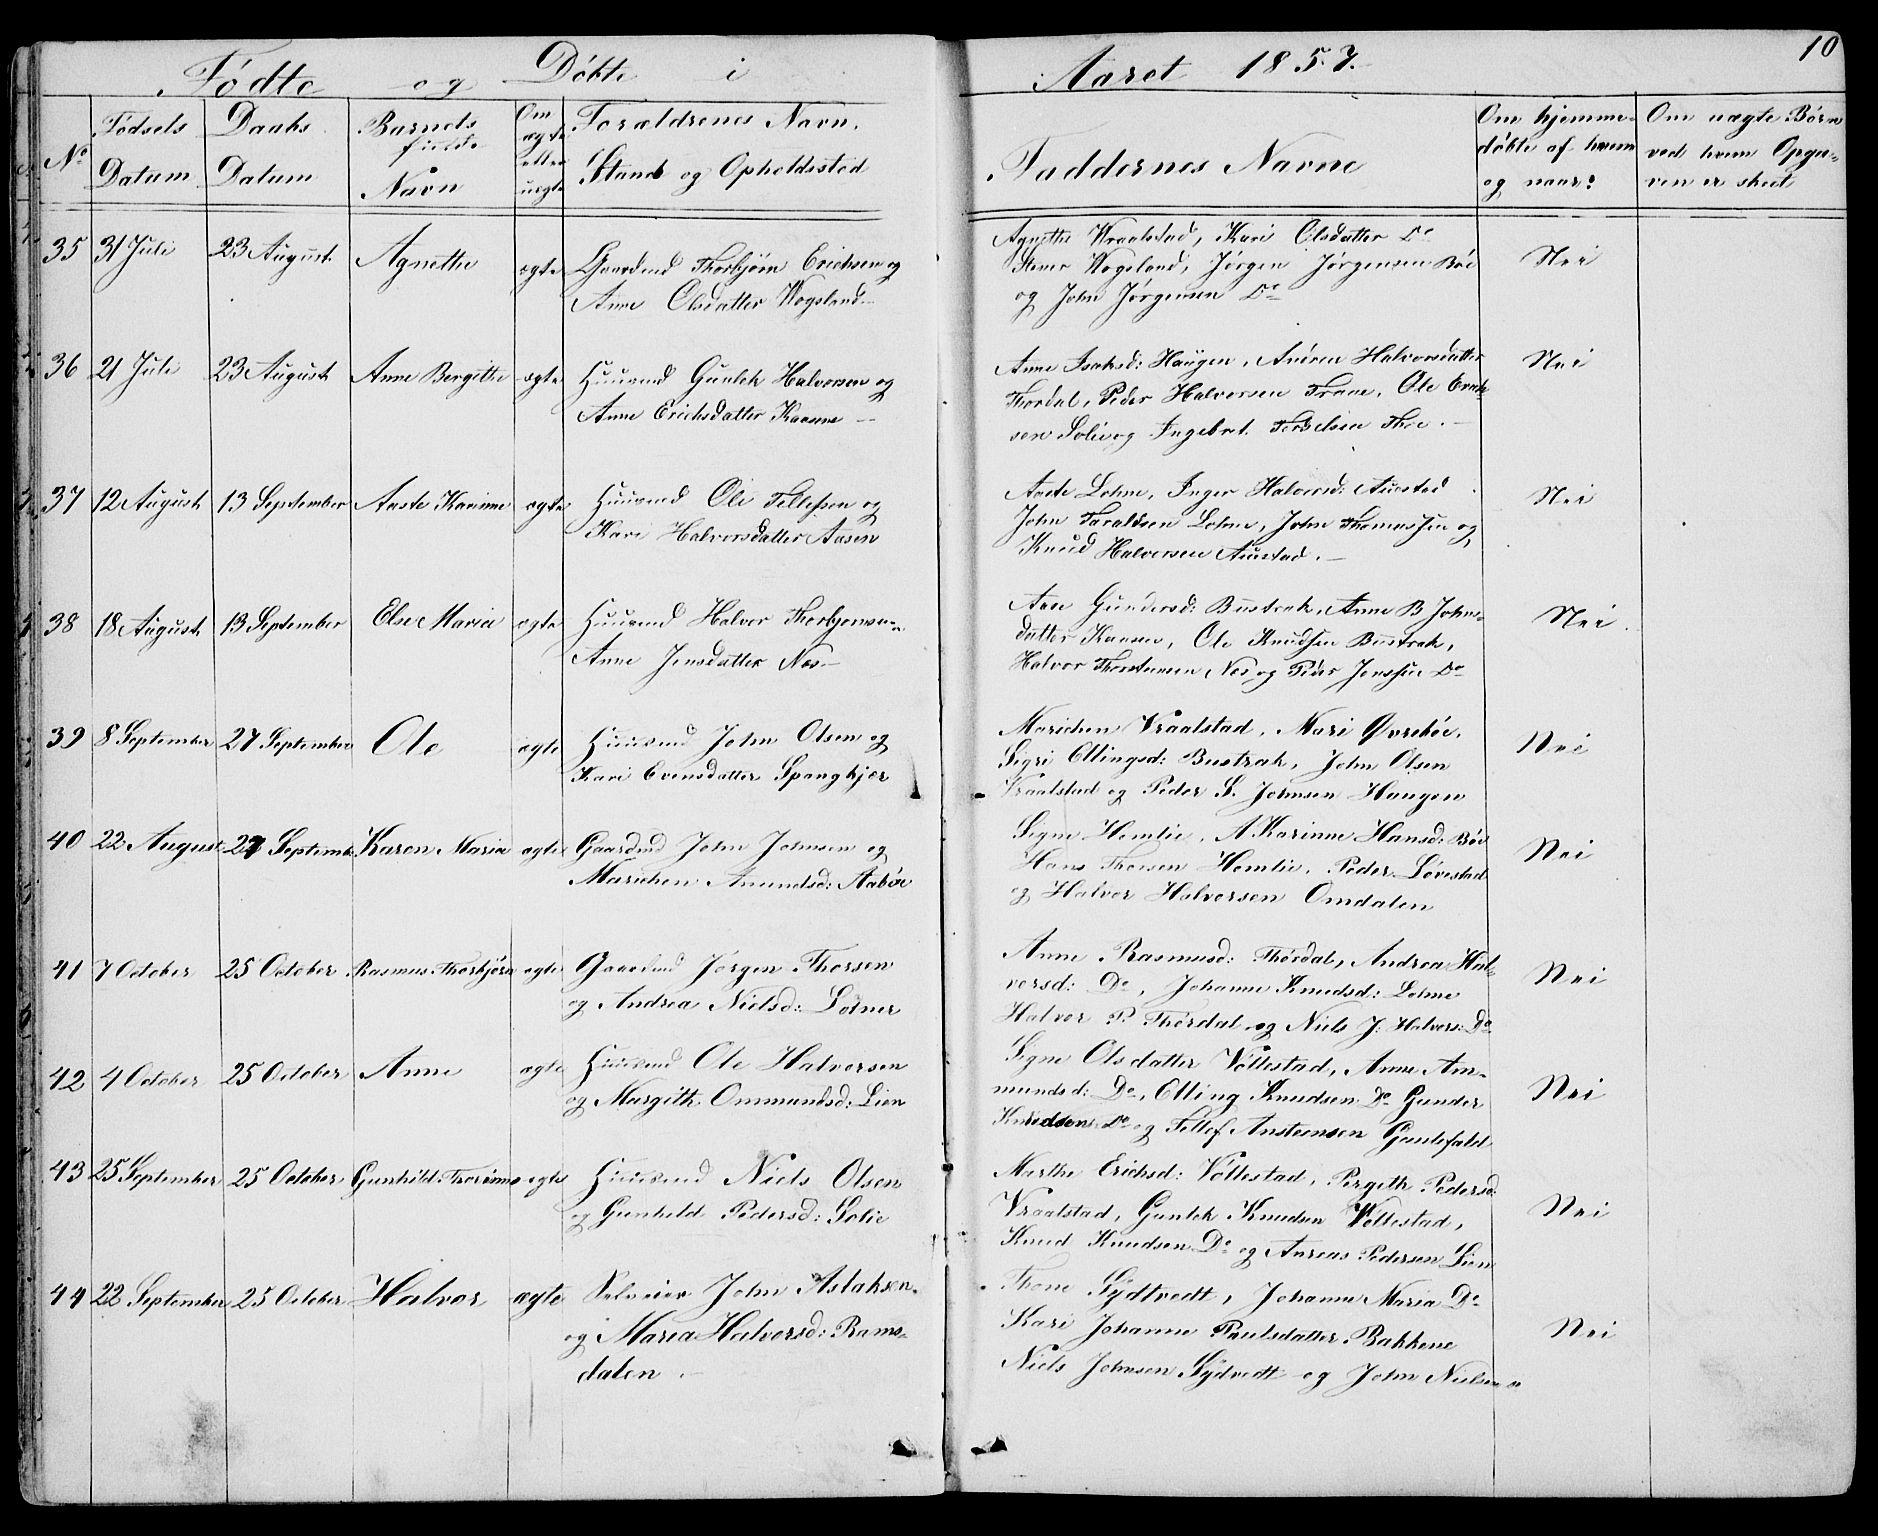 Fødte og Døbte i Aaret 1857.
10
No
Fødsels Datum
Daabs Datum
Barnets fulde Navn
Om ægte eller uægte
Forældrenes Navn, Stand og Opholdssted
Faddernes Navne
Om hjemmedøbte af hvem og naar?
Om uægte Børn ved hvem Opgaven er skeet
35 31 Juli 23 August Agnethe ægte Gaardmd Thorbjørn Erichsen og
Anne Olsdatter Wogsland
Agnethe Wraalstad, Kari Olsdatter Do
Wogsland, Jørgen Jørgensen Bøe
og John Jørgensen Do
Nei
36 21 Juli 23 August Anne Bergitte ægte Huusmd Gunlek Halvorsen og
Anne Erichsdatter Kaasene
Anne Isaksd: Haugen, Andrea Halvorsdatter
Thordal, Peder Halvorsen Trane, Ole Erik-
sen Solie og Ingebret Thoe.
Nei
37 12 August 13 September Aaste Karinne ægte Huusmd Ole Tellefsen og
Kari Halvorsdatter Aasen
Aaste Lohne, Inger Halvorsd: Austad
John Taraldsen Lohne, John Thomassen og
Knud Halvorsen Austad.
Nei
38 18 August 13 September Else Maria ægte Huusmd Halvor Thorbjønsen
Anne Jensdatter Nes
Aase Gundersd: Bustrak, Anne B Johns-
datter Kaasen, Ole Knudsen Bustrak,
Halvor Nes og Peder Jenssen Do
Nei
39 8 September 27 September Ole ægte Huusmd John Olsen og
Kari Evensdatter Spangkjer
Marichen Vraalstad, Mari Øvrebøe,
Sigri Ellingsd: Bustrak, John Olsen
Vraalstad og Peder S. Johnsen Haugen
Nei
40 22 August 27 Septemb. Karen Maria ægte Gaardmd John Johnsen og
Marichen Amundsd: Aabøe
Signe Homlie, A. Karinne Hansd: Bøe
Hans Thorsen Homlie, Peder Løvestad
og Halvor Halvorsen Omdalen
Nei
41 7 October 25 October Rasmus Thorbjørn ægte Gaardmd Jørgen Thorsen
og Andrea Nielsd: Lohner
Anne Rasmusd: Thørdal, Andrea Hal-
vorsd: Do, Johanne Knudsd: Lohne
Halvor P. Thørdal og Niels J: Halvors: Do
Nei
42 4 October 25 October Anne ægte Huusmd Ole Halvorsen
og Margith Ommundsd: Lien
Signe Olsdatter Vøllestad, Anne Am-
mundsd: Do, Elling Knudsen Do Gunder
Knudsen Do og Tellef Anstensen Guulefaldt
Nei
43 25 September 25 October Gunhild Thorinne ægte Huusmd Niels Olsen
og Gunhild Pedersd: Solie
Marthe Erichsd: Vøllestad, Pergith Pedersd:
Vraalstad, Gunlek Knudsen Vøllestad,
Knud Knudsen Do og Anreas Pedersen Lien
Nei
44 22 September 25 October Halvor ægte Selveier John Aslaksen
og Maria Halvorsd: Rams-
dalen
Thone Sydtvedt, Johanne Maria Do
Kari Johanne Paulsdatter Bakkene
Niels Johnsen Sydvedt og John Nielsen
Nei